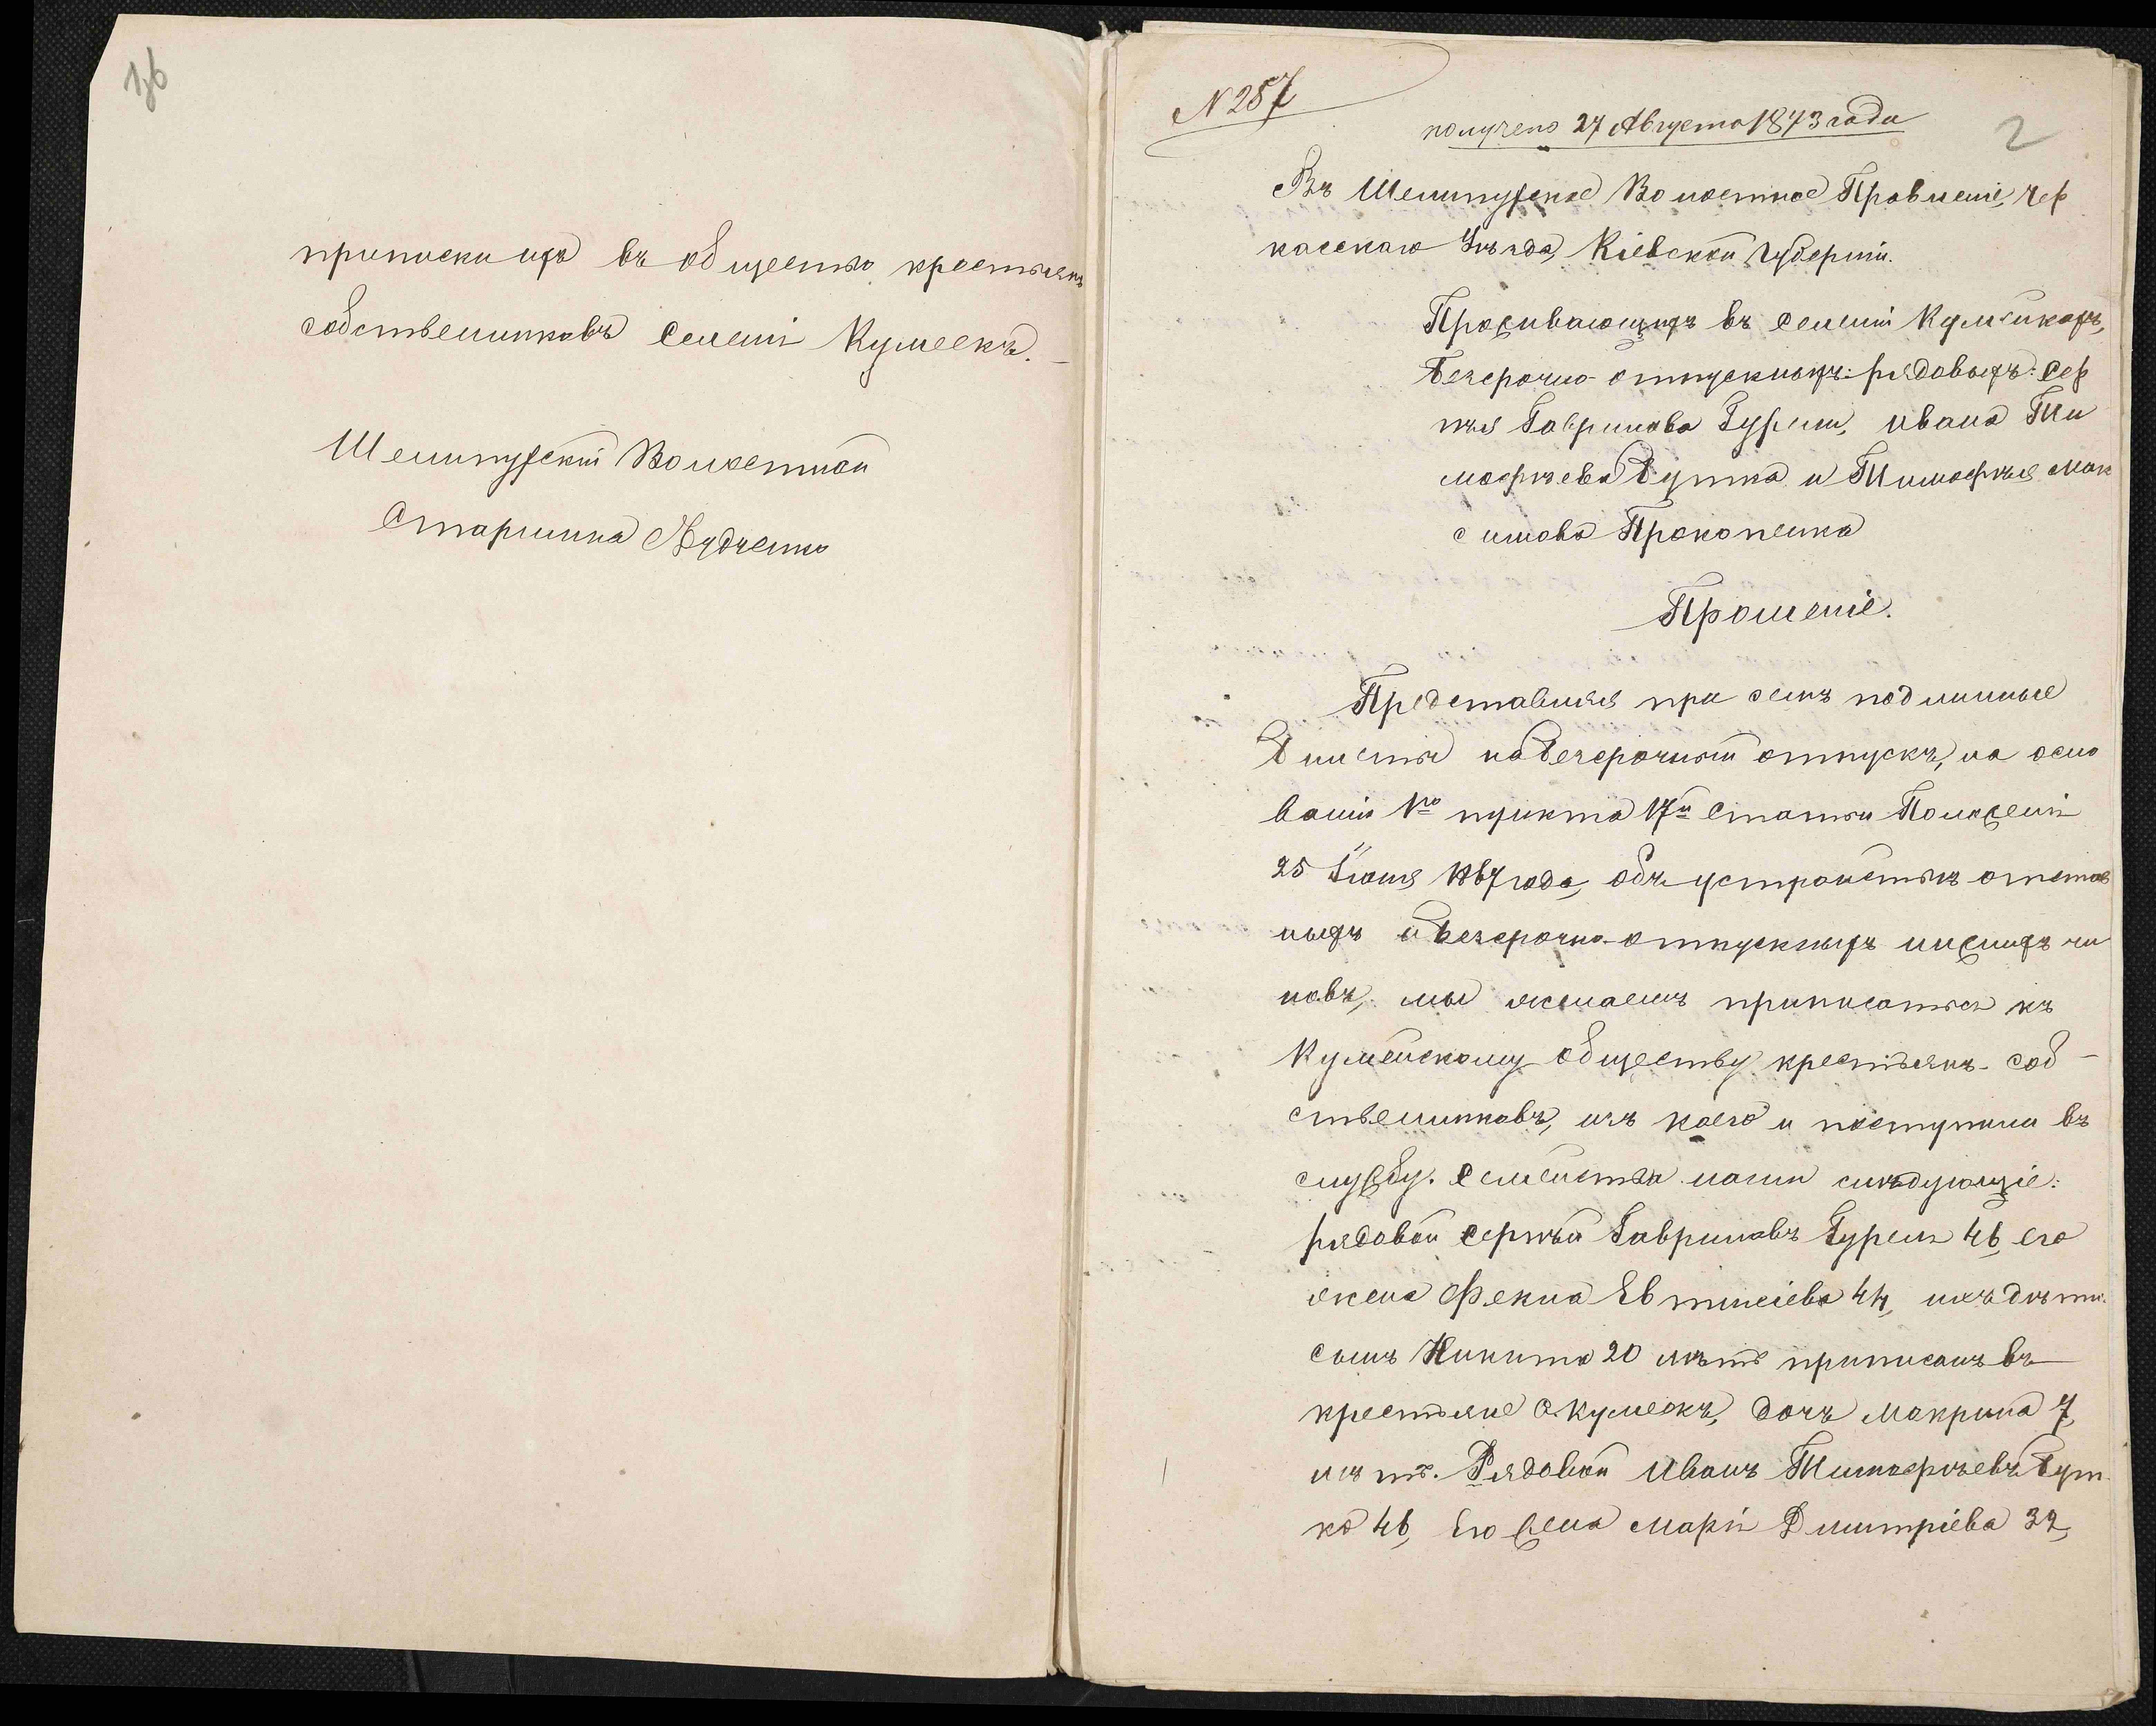 1об
приписки ихъ въ общество крестьянъ
собственниковъ Селенія Кумеекъ.
Шелипугскій Волостной
Старшина
N 257
получено 27 Августа 1873 года
2
Въ Шелипугское Волостное Правленіе, Чер
касскаго Уѣзда, Кіевской Губерніи.
Проживающихъ въ Селеніи Кумейкахъ,
безсрочно-отпускныхъ: рядовыхъ: Сер
гѣя Гаврилова Гуреш, Ивана Ти
мофѣева Бутка и Тимофѣя Мак
симова Прокопенка
Прошеніе.
Представляя при семъ подлинные
билеты на безсрочный отпускъ, на осно
ваніи 1го пункта 17й Статьи Положенія
25 Іюня 1867 года, объ устройствѣ отстав
ныхъ и безсрочно-отпускныхъ нижнихъ чи
новъ, мы желаемъ приписаться къ
Кумейскому обществу крестьянъ-соб-
ственниковъ, изъ коего и поступили въ
службу. Семейства наши слѣдующіе:
рядовой Сергѣй Гавриловъ Гуреш 46, его
жена Фекла Евтихіева 44, ихъ дѣти
сынъ Никита 20 лѣтъ приписанъ въ
крестьяне с. Кумеекъ, дочь Макрина 7,
лѣтъ. Рядовой Иванъ Тимофѣевъ Бут-
ко 46, Его жена Марія Дмитріева 32,